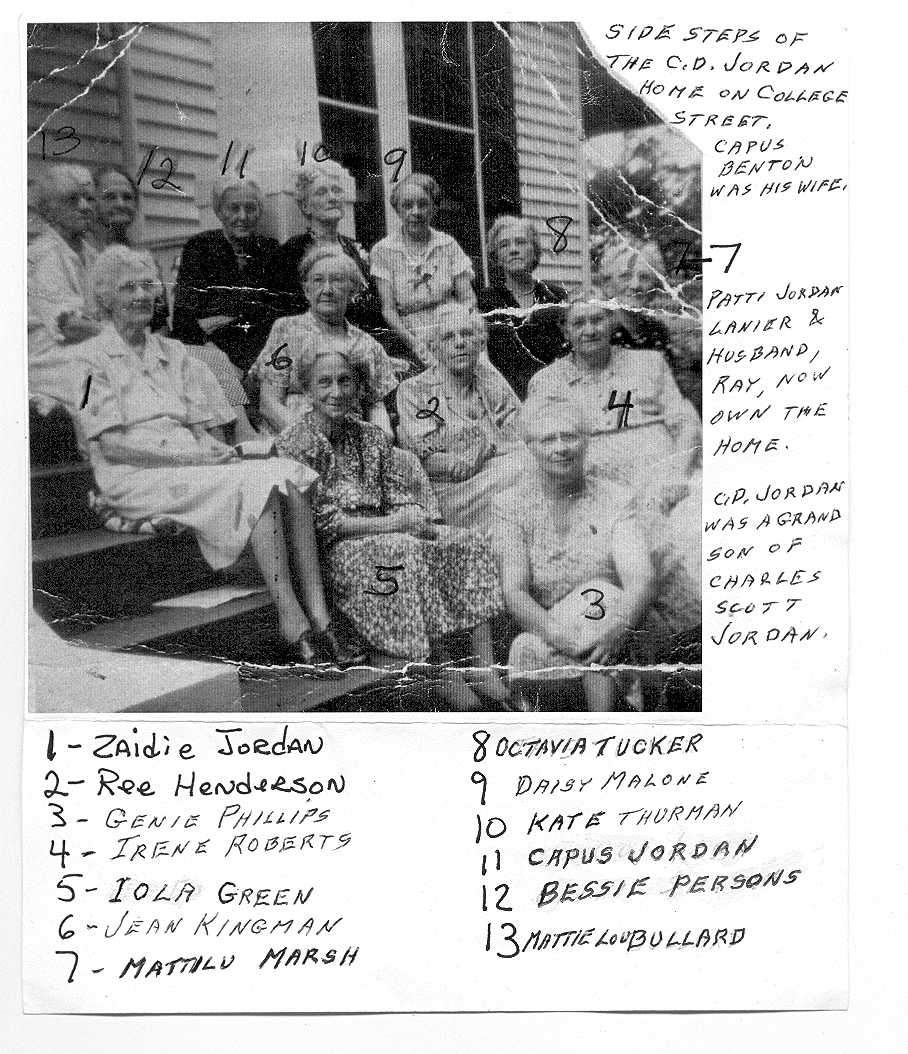 SIDE STEPS OF
THE C.D. JORDAN
HOME ON COLLEGE
STREET.
CAPUS
BENTON
WAS HIS WIFE.
13
12
11
10
9
8
7-7
PATTI JORDAN
LANIER &
HUSBAND,
RAY, NOW
OWN THE
HOME.
1
6
2
4
C.D. JORDAN
WAS A GRAND
SON OF
CHARLES
SCOTT
JORDAN.
5
3
1 - ZAidie JORdAN
2 - Ree HeNdeRsoN
3 - GENIE PHILLIPS
4 - IRENE ROBERTS
5 - IOLA GREEN
6 - JEAN KINGMAN
7 - MATTILU MARSH
8 OCTAVIA TUCKER
9 DAISY MALONE
10 KATE THURMAN
11 CAPUS JORDAN
12 BESSIE PERSONS
13 MATTIE LOU BULLARD